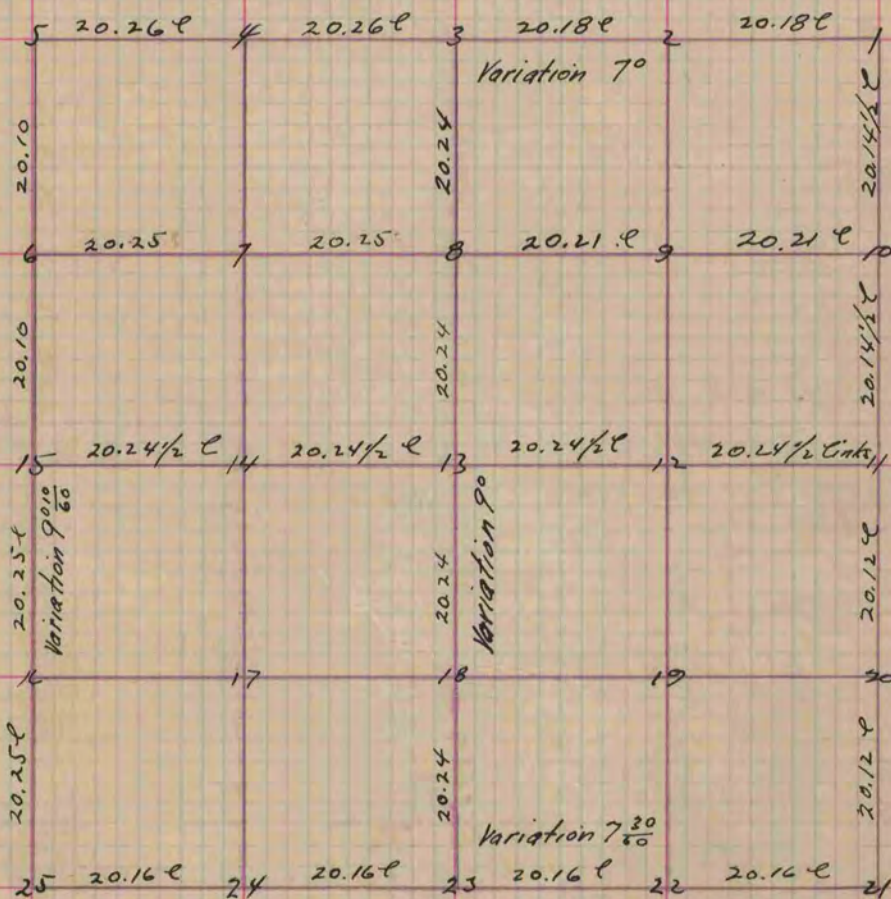 5 20.26 l 4 20.26 l 3 20.18 l 2 20.18 l 1
Variation 7°
20.10
20.24
20.14 1/2 l
6 20.25 7 20.25 8 20.21 l 9 20.21 l 10
20.10
20.24
20.14 1/2 l
15 20.24 1/2 l 14 20.24 1/2 l 13 20.24 1/2 l 12 20.24 1/2 links 11
20.25 l
Variation 9° 10/60
20.24
Variation 9°
20.12 l
16 17 18 19 20
20.25 l
20.24
20.12 l
Variation 7 30/60
25 20.16 l 24 20.16 l 23 20.16 l 22 20.16 l 21